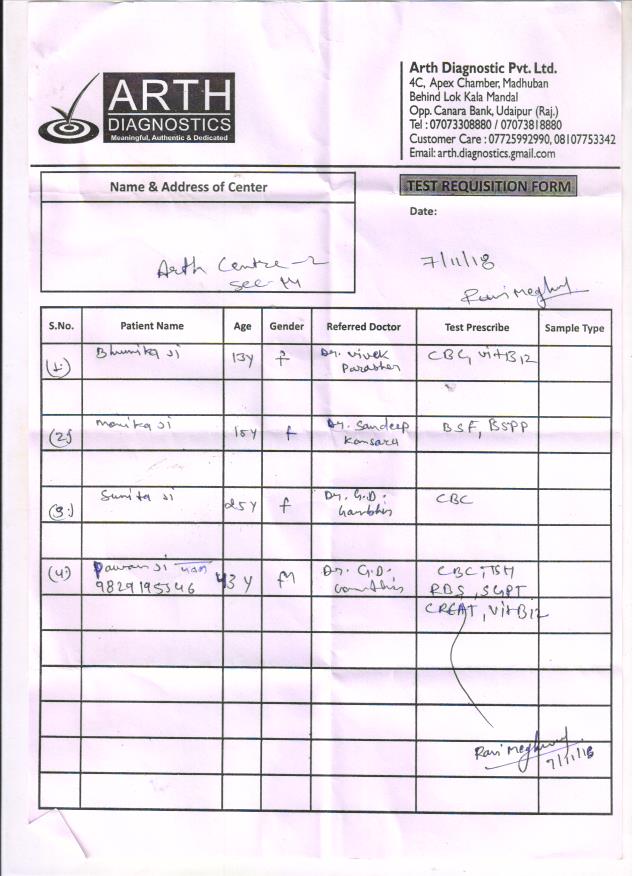 ARTH
DIAGNOSTICS
Meaningful, Authentic & Dedicated
Arth Diagnostic Pvt. Ltd.
4C, Apex Chamber, Madhuban
Behind Lok Kala Mandal
Opp. Canara Bank, Udaipur (Raj.)
Tel : 07073308880 / 07073818880
Customer Care : 07725992990, 08107753342
Email: arth.diagnostics.gmail.com
Name & Address of Center
TEST REQUISITION FORM
Date:
Arth Centre-2
Sec-14
7/11/18
Ravi Meghwal
S.No. Patient Name Age Gender Referred Doctor Test Prescribe Sample Type
(1) Bhumika Ji 13y f Dr. Vivek CBC, Vit B12
Parasher
(2) Monika Ji 15y f Dr. Sandeep BSF, BSPP
Kansara
(3) Sunita Ji 25y f Dr. G.D. CBC
(4) Pawan Ji 43 y M Dr. G.D. CBC, TSH
9829195346 RBS, SGPT
CREAT, Vit B12
Ravi Meghwal
7/11/18